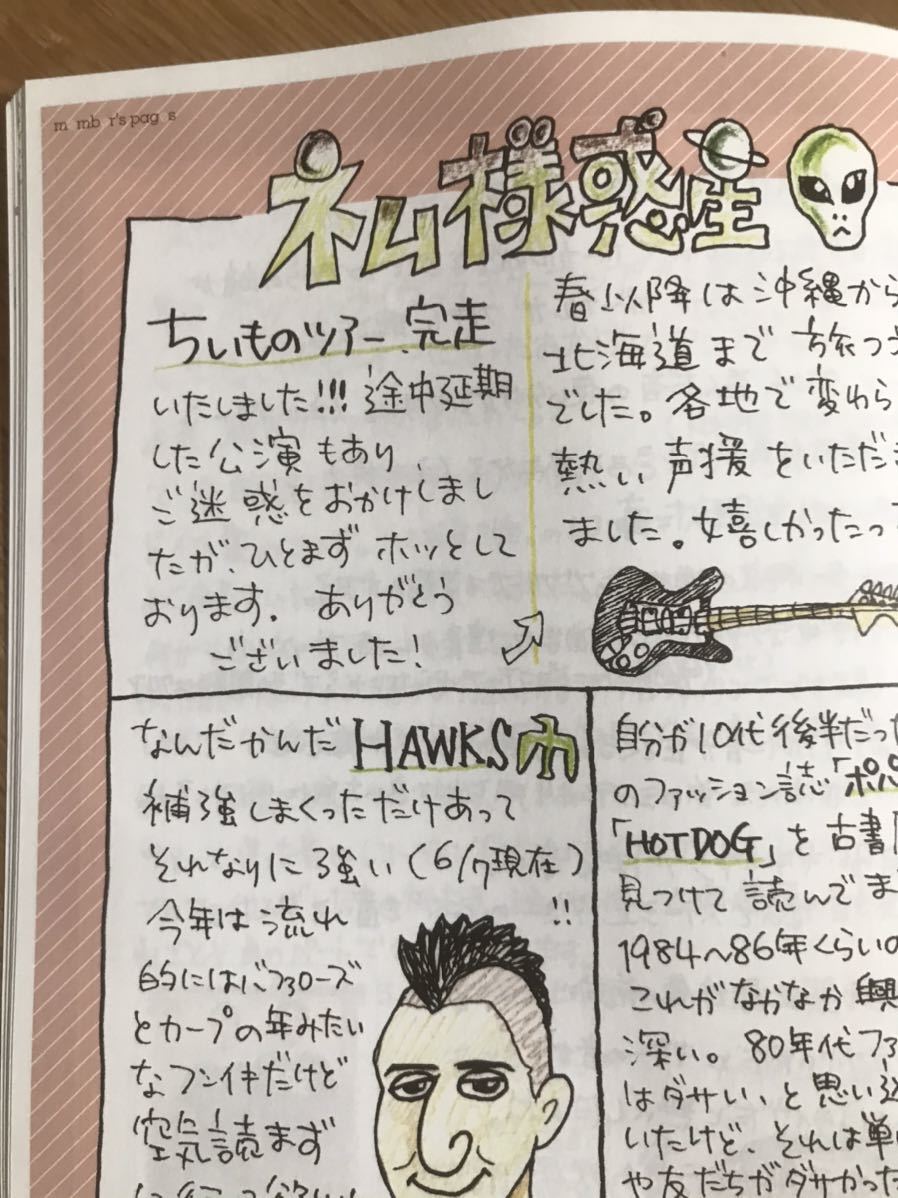 m mb r's pag s
ネム様惑星
ちいものツアー、完走
いたしました!!! 途中延期
した公演もあり、
ご迷惑をおかけしまし
たが、ひとまずホッとして
おります。ありがとう
ございました!
春以降は沖縄から
北海道まで旅つづ
でした。各地で変わら
熱い声援をいただき
ました。嬉しかったっ
なんだかんだHAWKS
補強しまくっただけあって
それなりに強い(6/7現在)
!!
今年は流れ
的にはバファローズ
とカープの年みたい
なフンイキだけど
空気読まず
自分が10代後半だった
のファッション誌「ポパ
「HOTDOG」を古書
見つけて読んでま
1984〜86年くらいの
これがなかなか興
深い。80年代ファ
はダサい、と思い込
いたけど、それは単
や友だちがダサかった